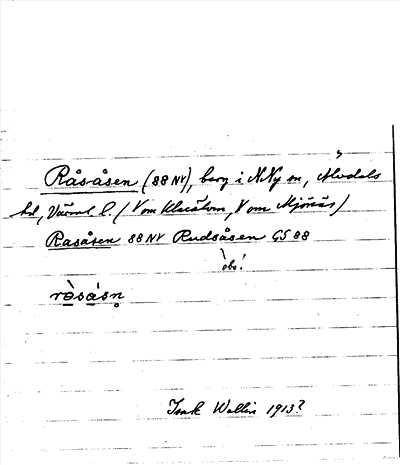 Råsåsen (88 NV), berg i N Ny sn, Älvdals
hd, Värml. l. (V om Klarälven, V om Mjönäs)
Rasåsen 88 NV Rudsåsen GS 88
obs!
ròsásn̥
Isak Wallin 1913?